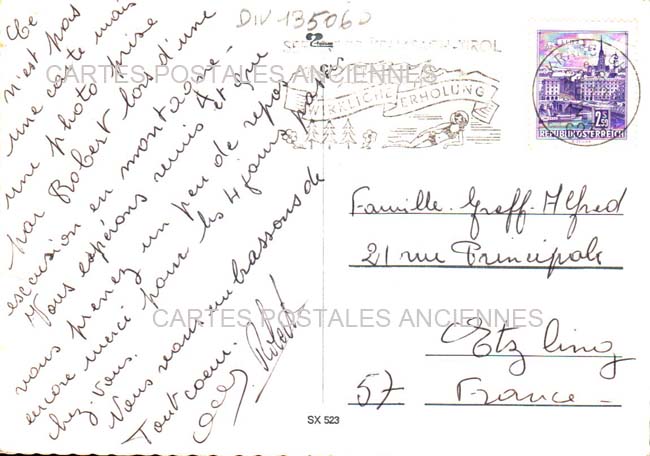 DIV 135060
CARTES POSTALES ANCIENNES
WIRKLICHE ERHOLUNG
2.50
REPUBLIK ÖSTERREICH
Ce
n'est pas
une carte mais
une photo prise
par Robert lors d'une
excursion en montagne.
Vous espérons remis et que
vous prenez un peu de repos
encore merci pour les 4 jours passés
chez vous.
Nous vous embrassons de
Tout coeur.
Robert
Famille Greff Alfred
21 rue Principale
Etzling
57 France
CARTES POSTALES ANCIENNES
SX 523